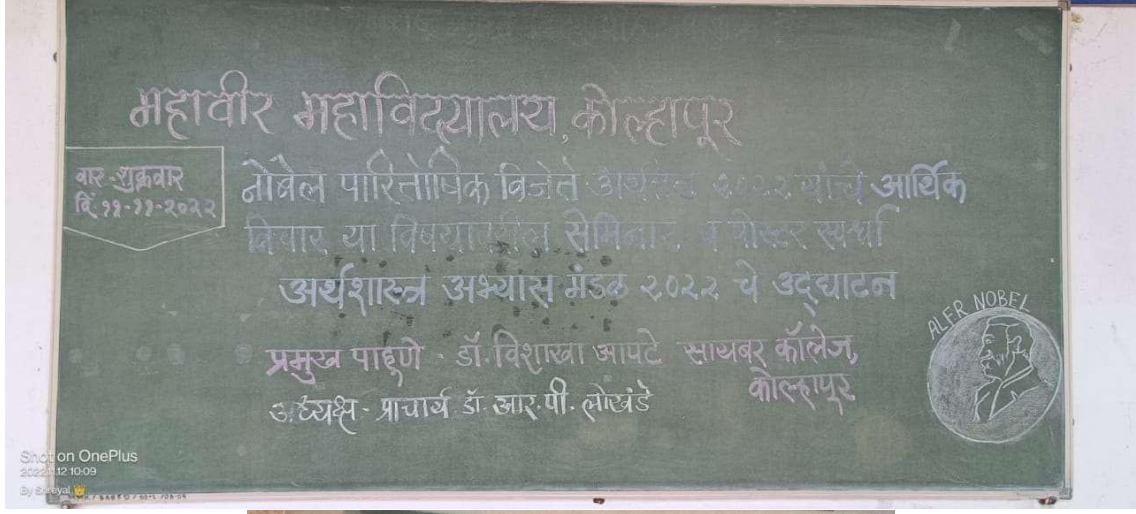 महावीर महाविद्यालय, कोल्हापूर
वार - शुक्रवार
दि. ११-११-२०२२
नोबेल पारितोषिक विजेते अर्थतज्ञ २०२२ यांचे आर्थिक
विचार या विषयावरील सेमिनार व पोस्टर स्पर्धा
अर्थशास्त्र अभ्यास मंडळ २०२२ चे उद्घाटन
प्रमुख पाहुणे - डॉ. विशाखा आपटे सायबर कॉलेज,
कोल्हापूर
अध्यक्ष - प्राचार्य डॉ. आर. पी. लोखंडे
ALFR NOBEL
Shot on OnePlus
2022.11.12 10:09
By Shreyal